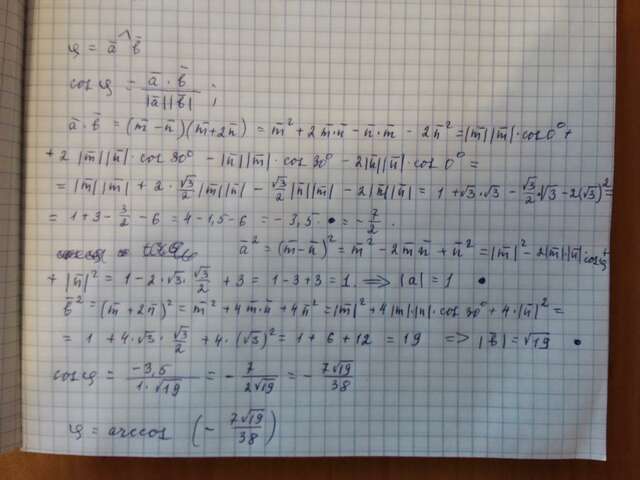 φ = a̅ ^ b̅
cos φ = a̅ · b̅ / |a̅||b̅| ;
a̅ · b̅ = (m̅ − n̅)(m̅ + 2n̅) = m̅² + 2m̅·n̅ − n̅·m̅ − 2n̅² = |m̅||m̅| · cos 0° +
+ 2 |m̅||n̅| · cos 30° − |n̅||m̅| · cos 30° − 2|n̅||n̅| · cos 0° =
= |m̅||m̅| + 2 · √3/2 |m̅||n̅| − √3/2 |n̅||m̅| − 2|n̅||n̅| = 1 + √3·√3 − √3/2·√3 − 2(√3)² =
= 1 + 3 − 3/2 − 6 = 4 − 1,5 − 6 = −3,5 · = −7/2 .
a̅² = (m̅ − n̅)² = m̅² − 2m̅n̅ + n̅² = |m̅|² − 2|m̅|·|n̅| cos φ +
+ |n̅|² = 1 − 2·√3·√3/2 + 3 = 1 − 3 + 3 = 1. ⟹ |a| = 1
b̅² = (m̅ + 2n̅)² = m̅² + 4m̅·n̅ + 4n̅² = |m̅|² + 4|m|·|n|·cos 30° + 4·|n̅|² =
= 1 + 4·√3·√3/2 + 4·(√3)² = 1 + 6 + 12 = 19 ⟹ |b̅| = √19
cos φ = −3,5 / 1·√19 = − 7/2√19 = − 7√19/38
φ = arccos (− 7√19/38)